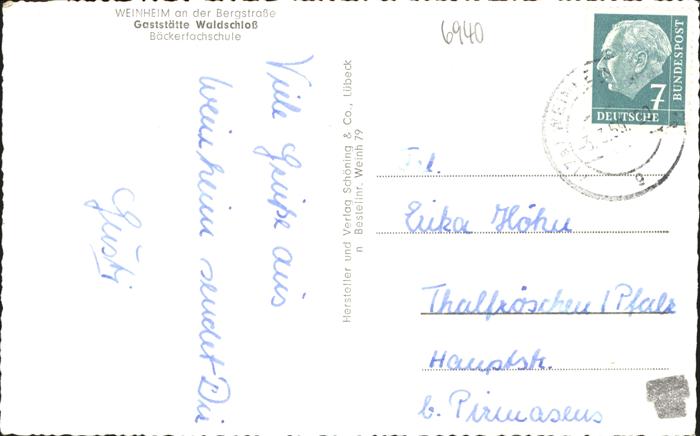 WEINHEIM an der Bergstraße
Gaststätte Waldschloß
Bäckerfachschule
6940
Viele Grüße aus
Weinheim sendet Dir
Gusti
Hersteller und Verlag Schöning & Co., Lübeck
n Bestellnr. Weinh 79
7
DEUTSCHE
BUNDESPOST
Frl.
Erika Höhn
Thalfröschen / Pfalz
Hauptstr.
b. Pirmasens